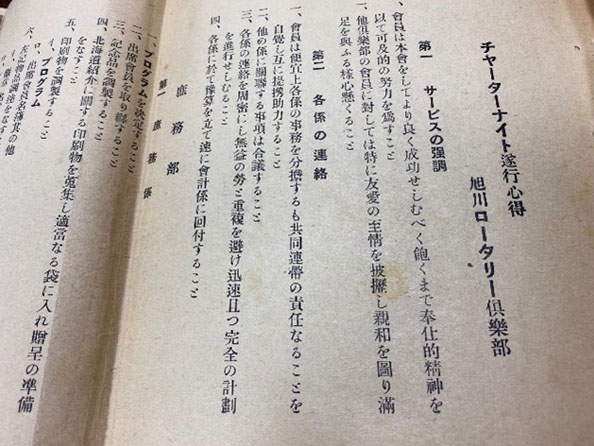 チャーターナイト遂行心得
旭川ロータリー倶樂部
第一　サービスの强調
一、會員は本會をしてより良く成功せしむべく飽くまで奉仕的精神を
以て可及的の努力を爲すこと
二、他倶樂部の會員に對しては特に友愛の至情を披攊し親和を圖り滿
足を與ふる樣心懸くること
第二　各係の連絡
一、會員は便宜上各係の事務を分擔するも共同連帶の責任なることを
自覺し互に提携助力すること
二、他の係に關聯する事項は合議すること
三、各係の連絡を周密にし無益の勞と重複を避け迅速且つ完全の計劃
を進行せしむること
四、各係に於て豫算を立て速に會計係に回付すること
庶務部
第一　庶務係
一、プログラムを決定すること
二、出席會員を取り纒すること
三、記念品を調製すること
四、北海道紹介に關する印刷物を蒐集し適當なる袋に入れ贈呈の準備
をなすこと
五、印刷物を調製すること
イ、プログラム
ロ、出席會員名簿其の他
六、左記物品調達をなす